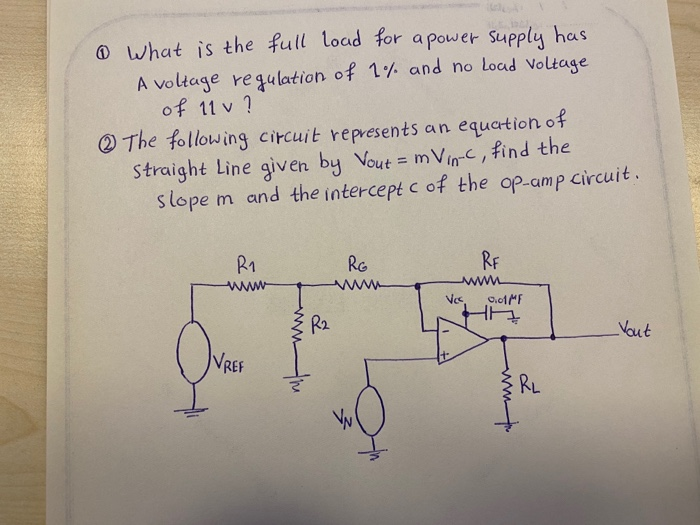 ① What is the full load for a power supply has
A voltage regulation of 1% and no Load Voltage
of 11 v ?
② The following circuit represents an equation of
straight Line given by Vout = mVin-C, find the
slope m and the intercept c of the op-amp circuit.
R1 RG RF
Vcc 0.01MF
R2 Vout
VREF
RL
VN